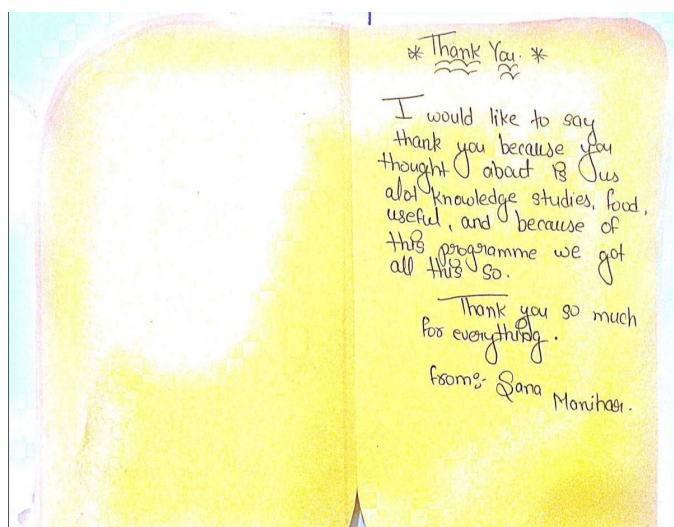 * Thank You. *
I would like to say
thank you because you
thought about us
alot knowledge studies, food,
useful, and because of
this programme we got
all this so.
Thank you so much
for everything.
from:- Sana Monihar.